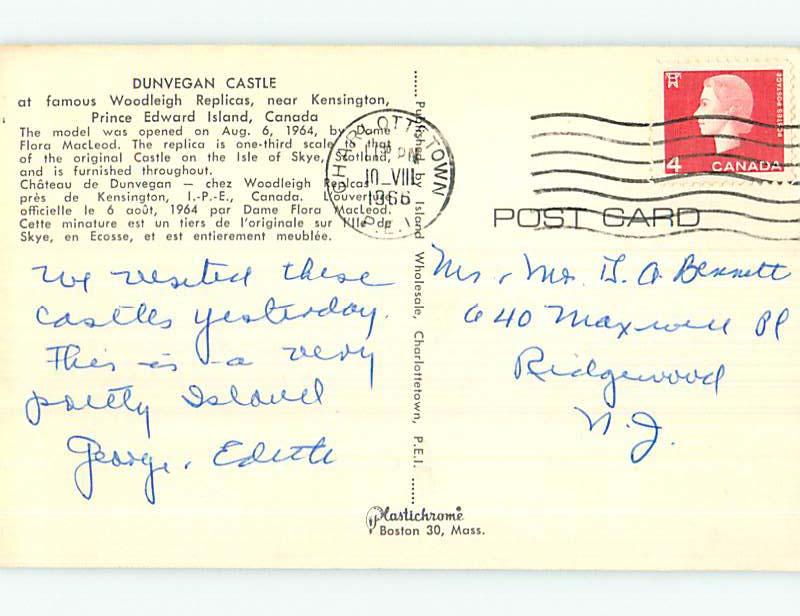 DUNVEGAN CASTLE
at famous Woodleigh Replicas, near Kensington,
Prince Edward Island, Canada
The model was opened on Aug. 6, 1964, by Dame
Flora MacLeod. The replica is one-third scale to that
of the original Castle on the Isle of Skye, Scotland,
and is furnished throughout.
Château de Dunvegan — chez Woodleigh Replicas
près de Kensington, I.-P.-E., Canada. L'ouverture
officielle le 6 août, 1964 par Dame Flora MacLeod.
Cette minature est un tiers de l'originale sur l'Ile de
Skye, en Ecosse, et est entierement meublée.
We visited these
castles yesterday.
This is a very
pretty Island
George, Edith
Published by Island Wholesale, Charlottetown, P.E.I.
Plastichrome
Boston 30, Mass.
CHARLOTTETOWN
PM
10_VIII
1966
P.E.I.
POSTES POSTAGE
4 CANADA
POST CARD
Mr. & Mrs. A. Bennett
640 Maxwell Pl
Ridgewood
N.J.